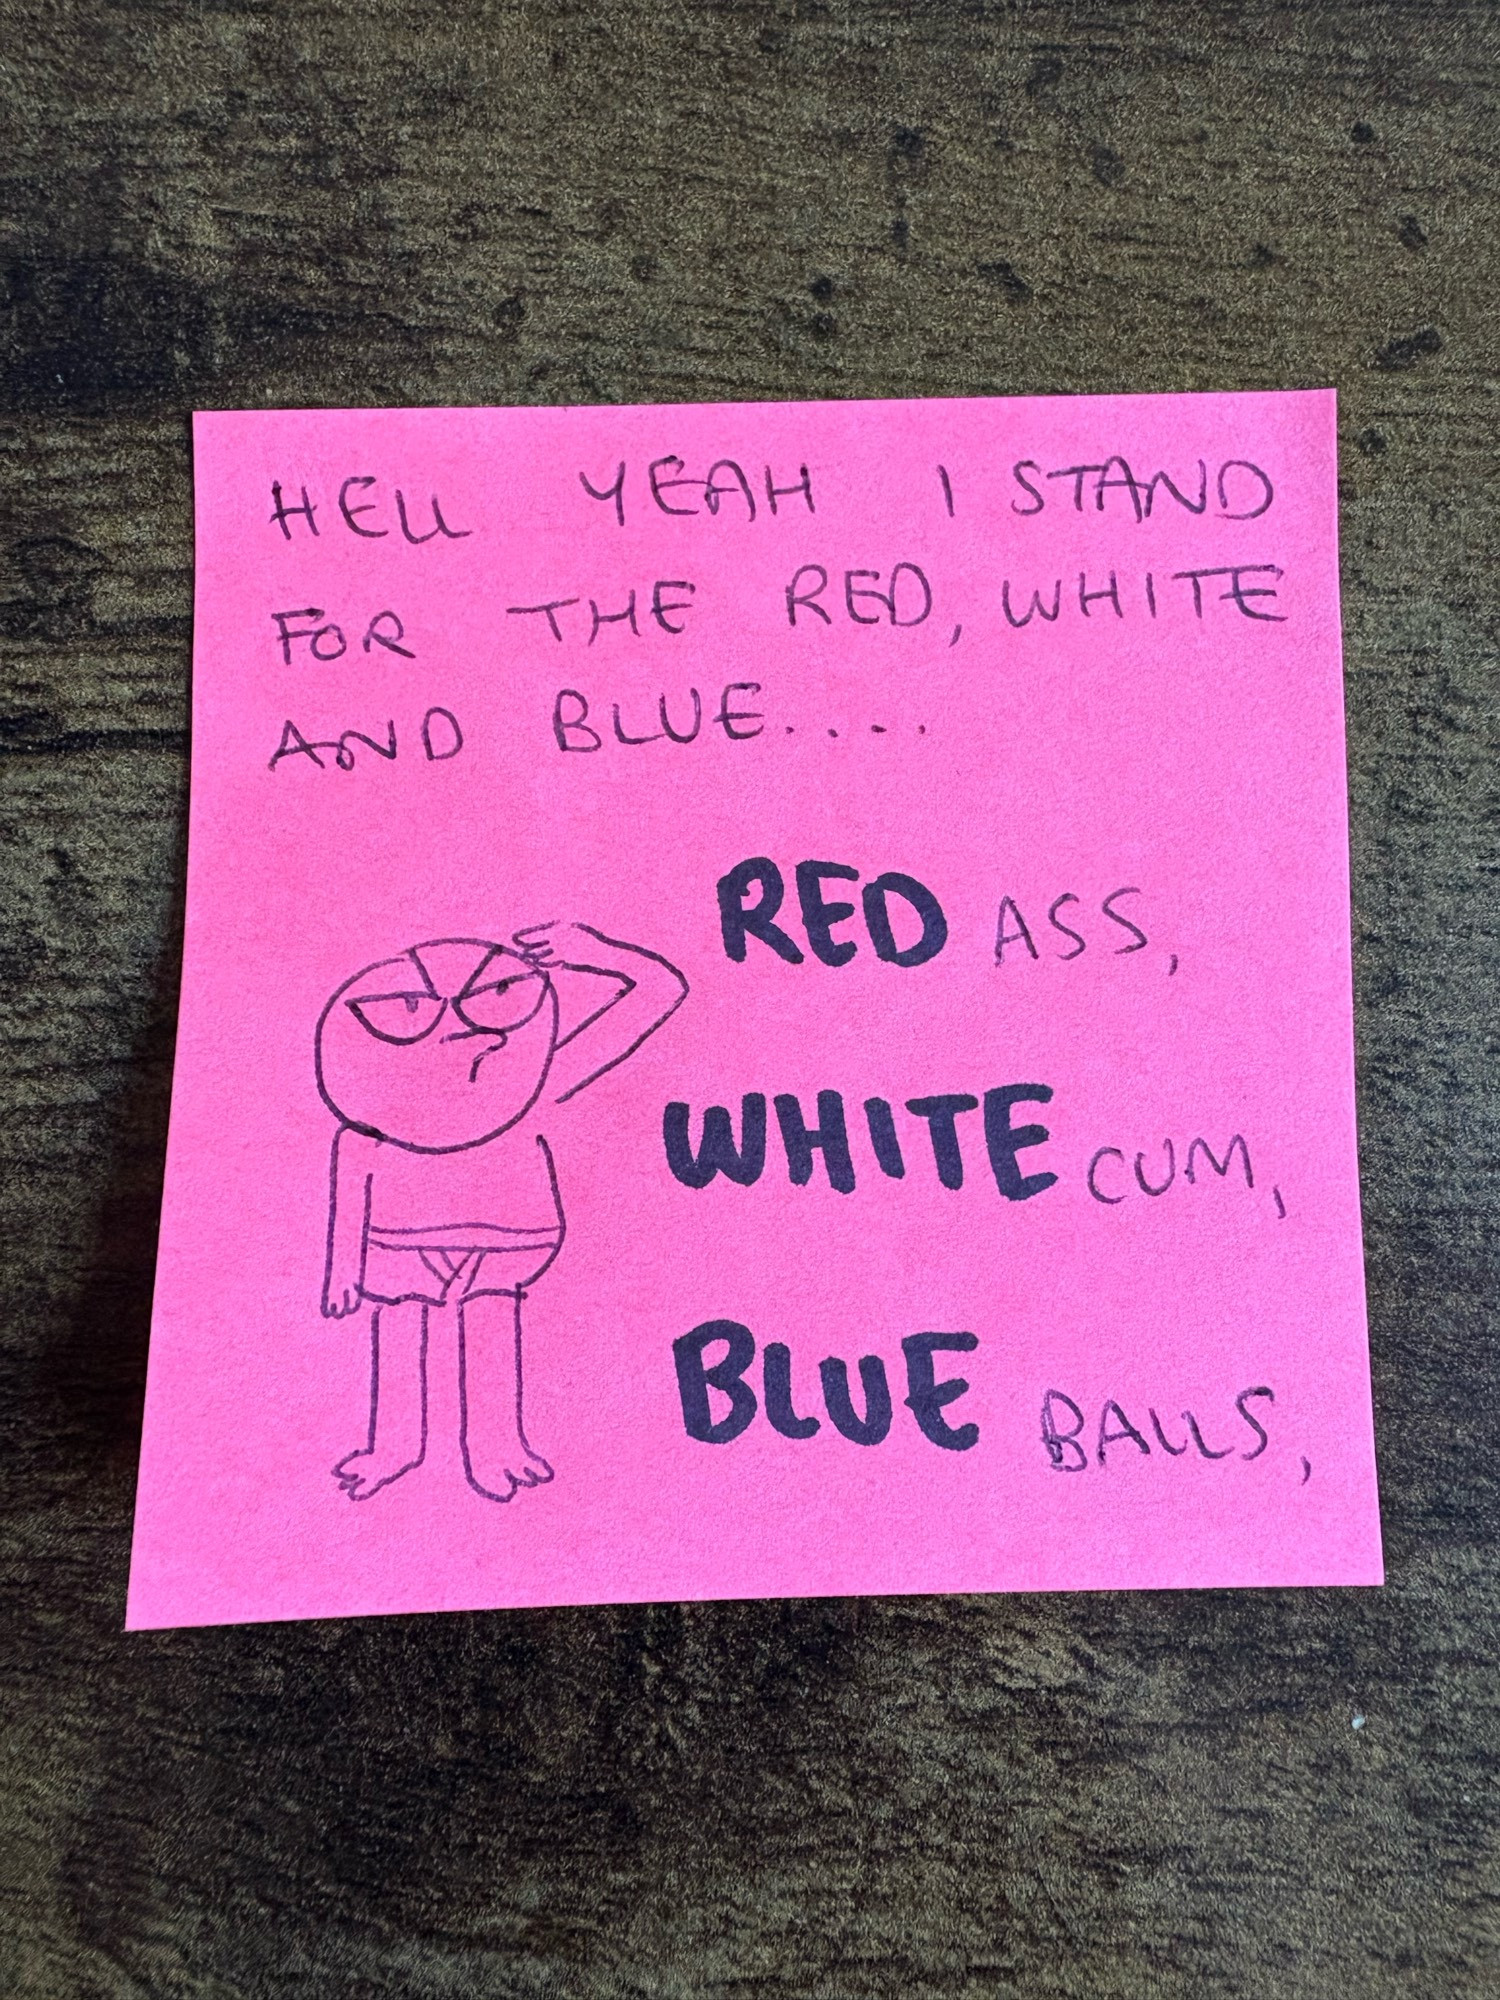 HELL YEAH I STAND
FOR THE RED, WHITE
AND BLUE....
RED ASS,
WHITE CUM,
BLUE BALLS,